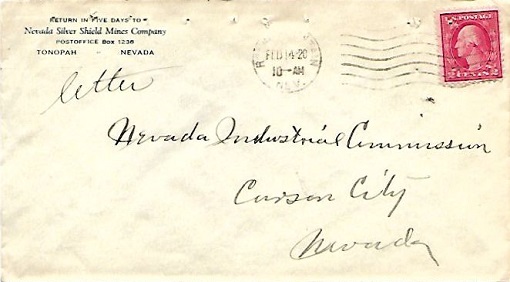 RETURN IN FIVE DAYS TO
Nevada Silver Shield Mines Company
POSTOFFICE BOX 1236
TONOPAH - NEVADA
letter
FEB 14 20
10 - AM
NEV.
2 CENTS 2
Nevada Industrial Commission
Carson City
Nevada